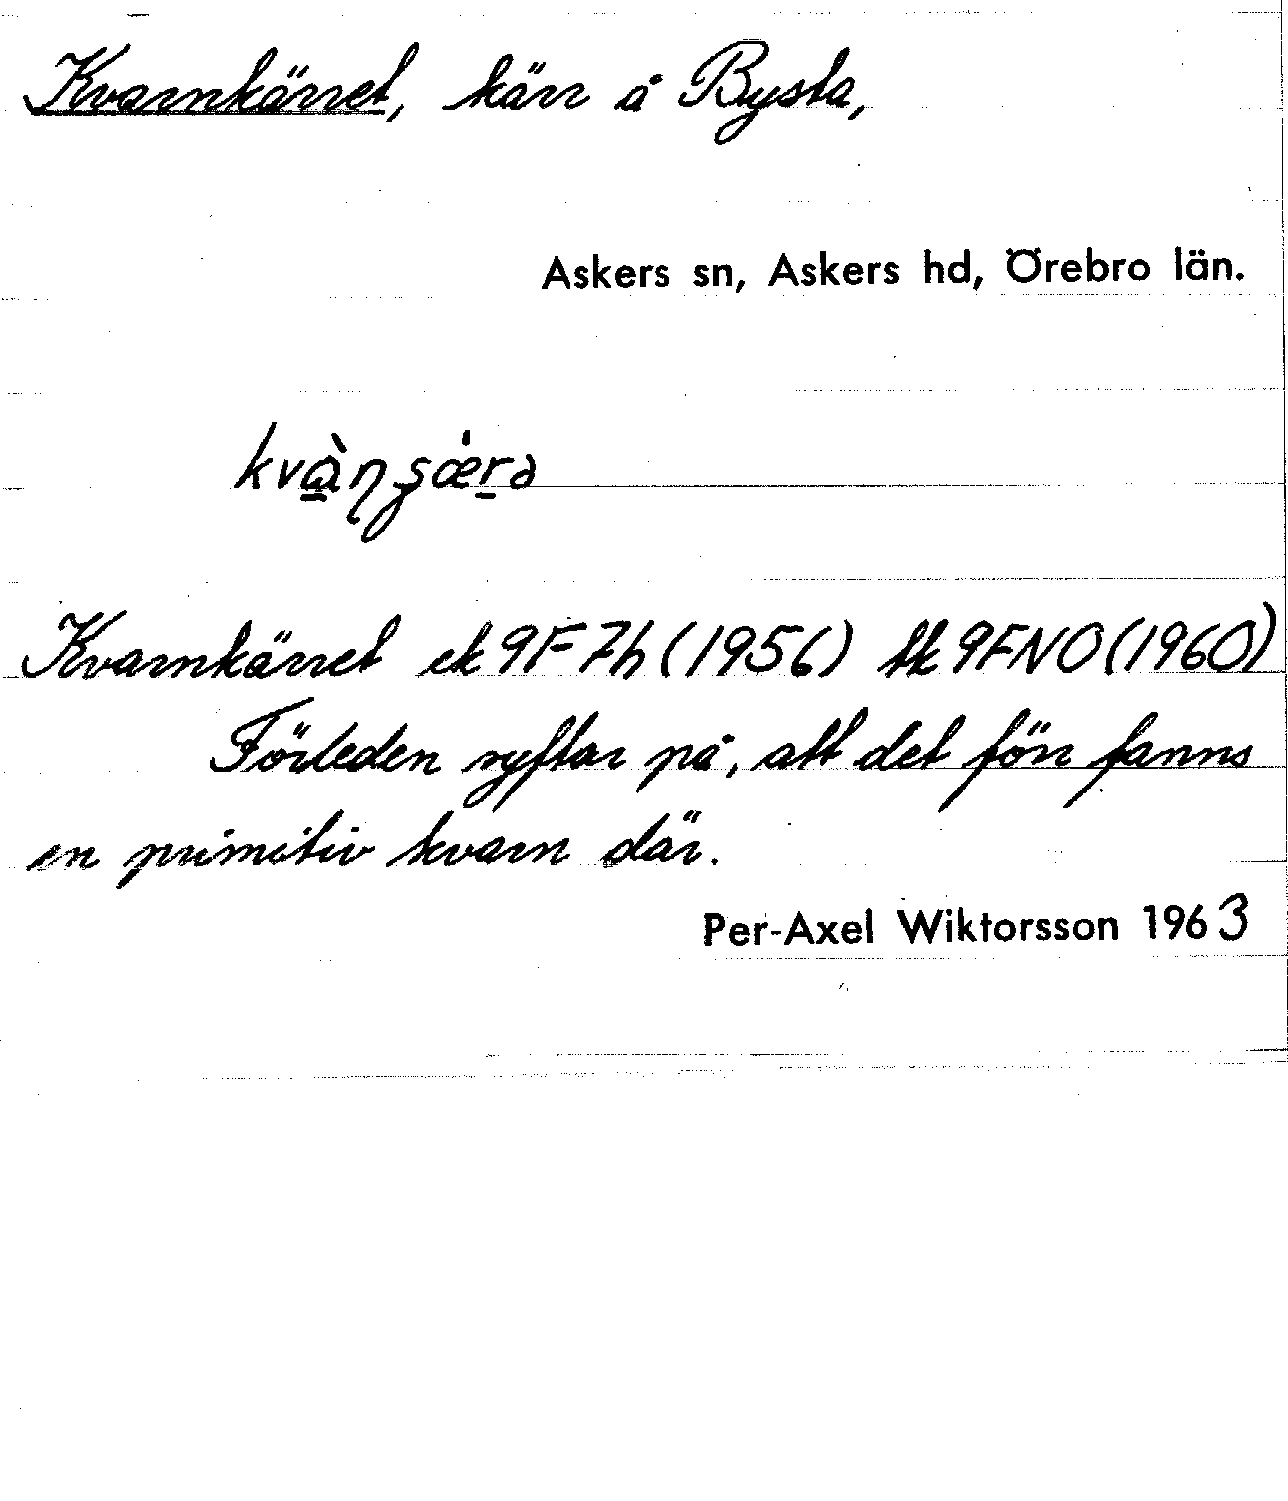 Kvarnkärret, kärr å Bysta,
Askers sn, Askers hd, Örebro län.
Kvarnkärret ek 9F 7h (1956) tk 9FNO (1960)
Förleden syftar på, att det förr fanns
en primitiv kvarn där.
Per-Axel Wiktorsson 1963